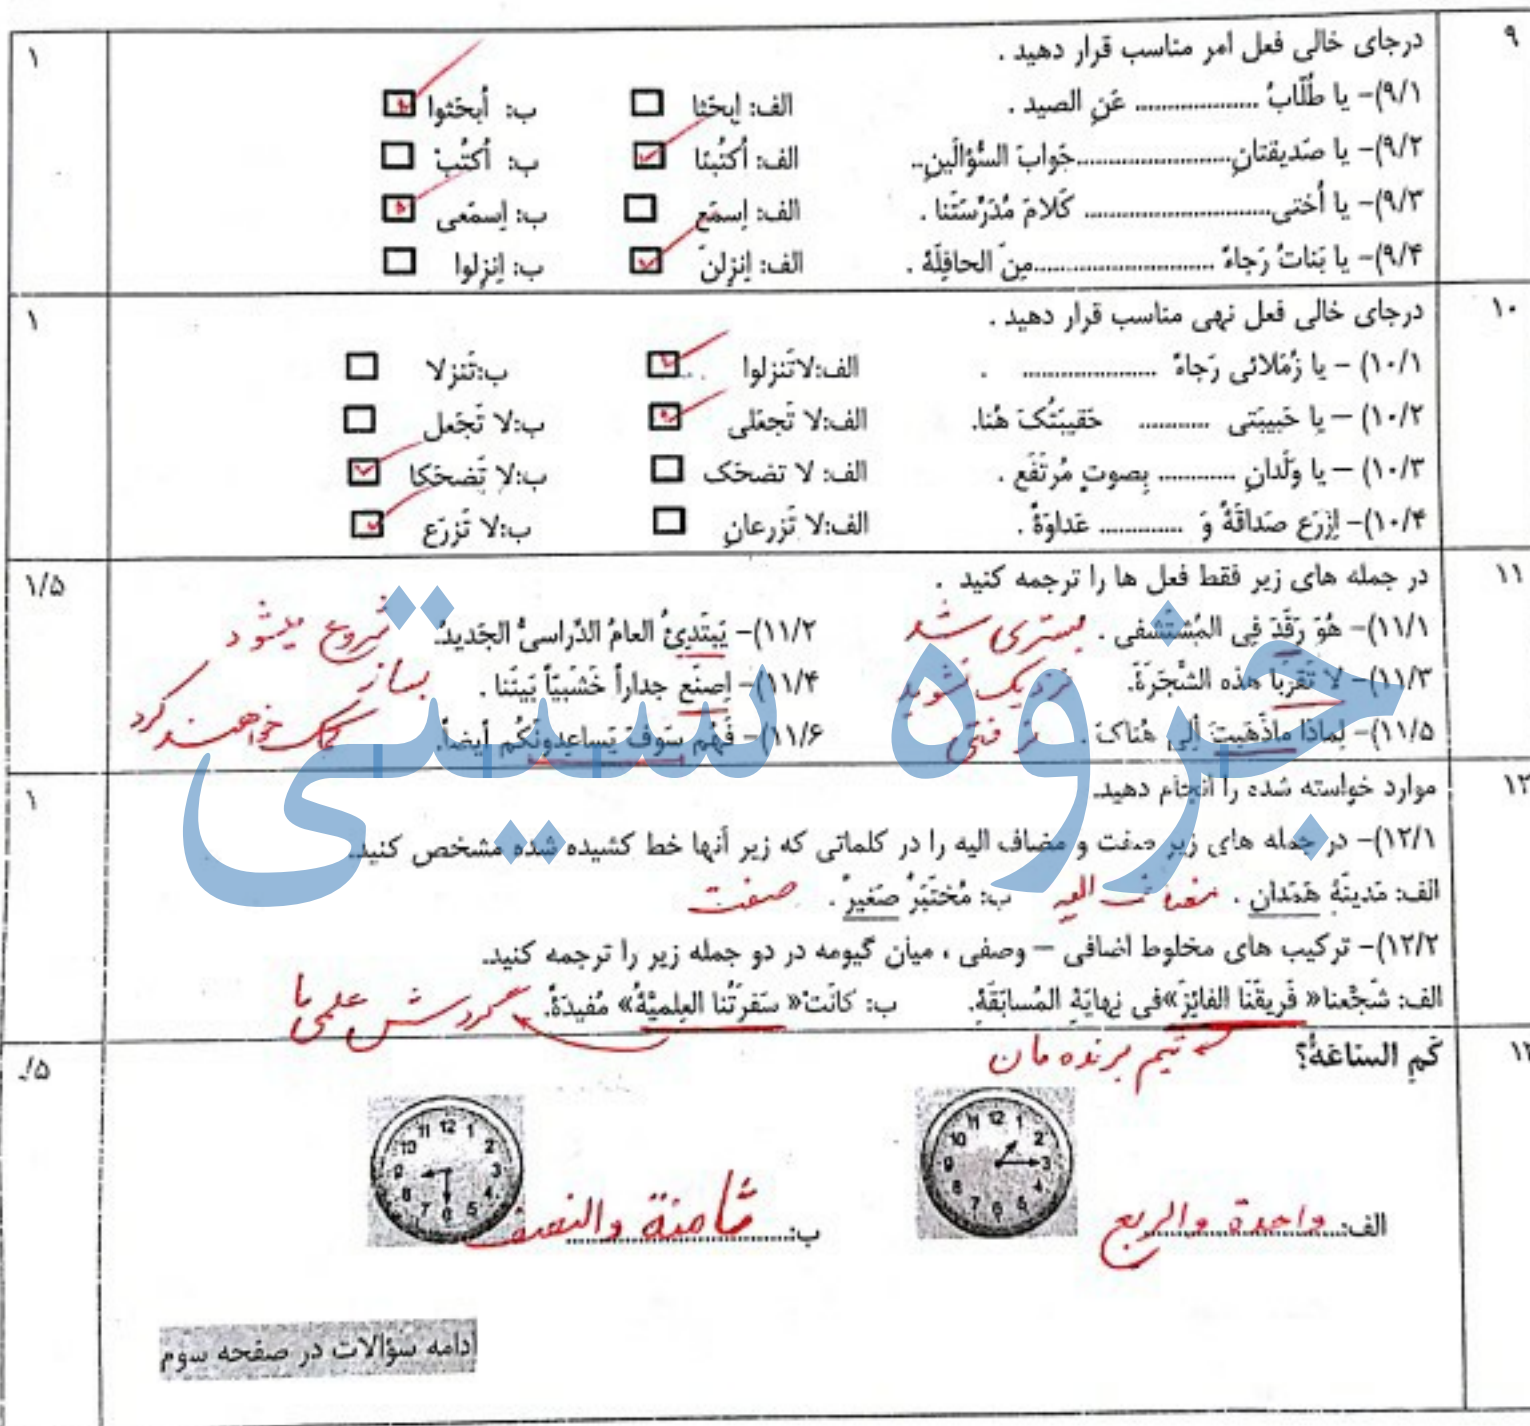 ۹ درجای خالی فعل امر مناسب قرار دهید . ۱
(۹/۱)- یا طُلّابُ .................... عَنِ الصید . الف: اِبحَثا ب: اُبحَثوا
(۹/۲)- یا صَدیقتانِ..........................جَوابَ السُّؤالَینِ.. الف: اُکتُبتا ب: اُکتُبْ
(۹/۳)- یا اُختی.............................. کَلامَ مُدَرِّسَتَنا . الف: اِسمَع ب: اِسمَعی
(۹/۴)- یا بَناتُ رَجاءً ..............................مِنَ الحافِلَهُ . الف: اِنزِلنَ ب: اِنزِلوا
۱۰ درجای خالی فعل نهی مناسب قرار دهید . ۱
(۱۰/۱) – یا زُمَلائی رَجاءً ...................... . الف:لاتَنزلوا ب:تَنزلا
(۱۰/۲) – یا حَبیبَتی ............ حَقیبَتُکَ هُنا. الف:لا تَجعَلی ب:لا تَجعَل
(۱۰/۳) – یا وَلَدانِ ............. بِصوتٍ مُرتَفَع . الف: لا تضحَک ب:لا تَضحَکا
(۱۰/۴)- اِزرَع صَداقَةً وَ .............. عَداوَةً . الف:لا تَزرعانِ ب:لا تَزرَع
۱۱ در جمله های زیر فقط فعل ها را ترجمه کنید . ۱/۵
(۱۱/۱)- هُوَ رَقَدَ فِی المُستَشفی . بستری شد (۱۱/۲)- یَبتَدِئُ العامُ الدِّراسیُّ الجَدیدُ. شروع میشود
(۱۱/۳)- لا تَقرَبا هذه الشَّجَرَةَ. نزدیک نشوید (۱۱/۴)- اِصنَع جداراً خَشَبیّاً بَیتَنا . بساز
(۱۱/۵)- لِماذا ماذَهَبتَ اِلی هُناکَ . نرفتی (۱۱/۶)- فَهُم سَوفَ یَساعِدونَکُم أیضاً. کمک خواهند کرد
جزوه سیتی
۱۲ موارد خواسته شده را انجام دهید. ۱
(۱۲/۱)- در جمله های زیر صفت و مضاف الیه را در کلماتی که زیر آنها خط کشیده شده مشخص کنید.
الف: مَدینَةِ هَمَدان . مضاف الیه ب: مُختَبَرٌ صَغیرٌ . صفت
(۱۲/۲)- ترکیب های مخلوط اضافی – وصفی ، میان گیومه در دو جمله زیر را ترجمه کنید.
الف: شَجَّعنا« فَریقَنَا الفائِزَ»فی نِهایَةِ المُسابَقَةِ. ب: کانَتْ« سَفرَتُنا العِلمیَّةُ» مُفیدَةً. گردش علمی ما
تیم برنده مان
۱۳ کَمِ السّاعَةُ؟ /۵
12 1 2 3 4 5 6 7 8 9 10 11
12 1 2 3 4 5 6 7 8 9 10 11
الف: واحدة والربع ب: ثامنة والنصف
ادامه سؤالات در صفحه سوم